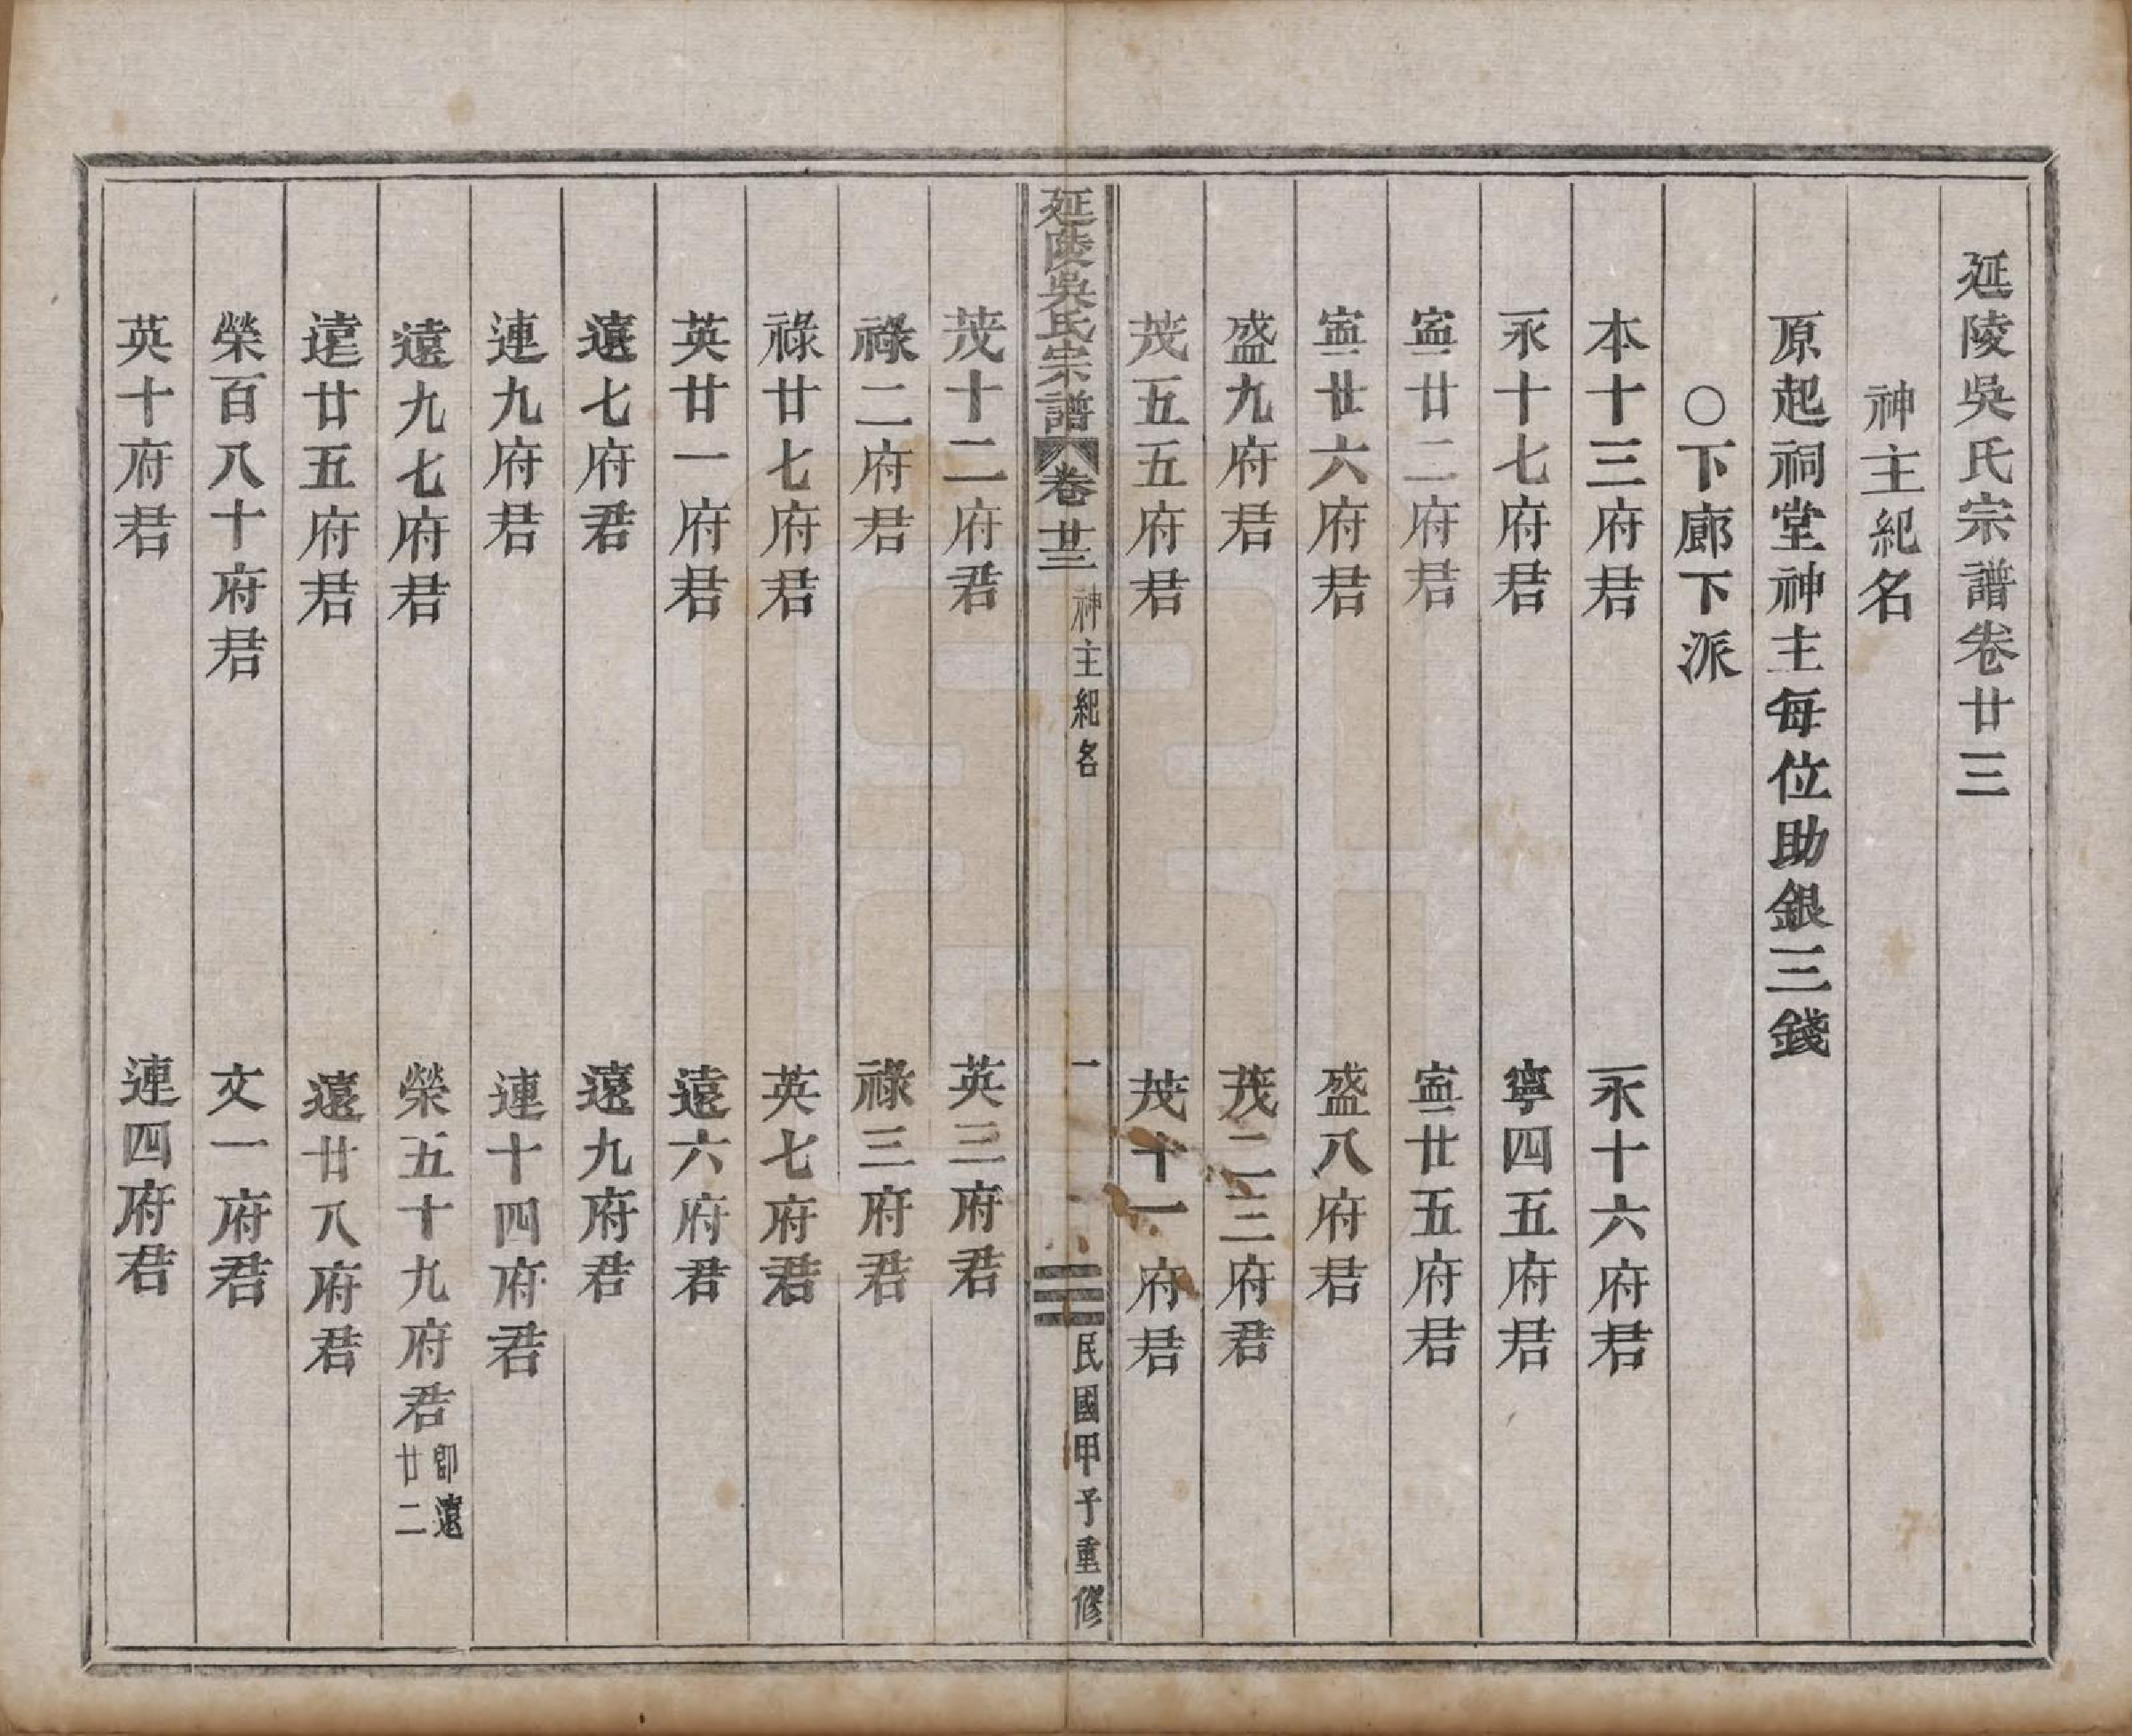 延陵吳氏宗譜卷廿三
神主紀名
原起祠堂神主每位助銀三錢
○下廊下派
本十三府君 永十六府君
永十七府君 寧四五府君
寍廿二府君 寍廿五府君
寍廿六府君 盛八府君
盛九府君 茂二三府君
茂五五府君 茂十一府君
延陵吳氏宗譜 卷廿三 神主紀名 一 民國甲子重修
茂十二府君 英三府君
祿二府君 祿三府君
祿廿七府君 英七府君
英廿一府君 遠六府君
遠七府君 遠九府君
連九府君 連十四府君
遠九七府君 榮五十九府君 即遠廿二
遠廿五府君 遠廿八府君
榮百八十府君 文一府君
英十府君 連四府君